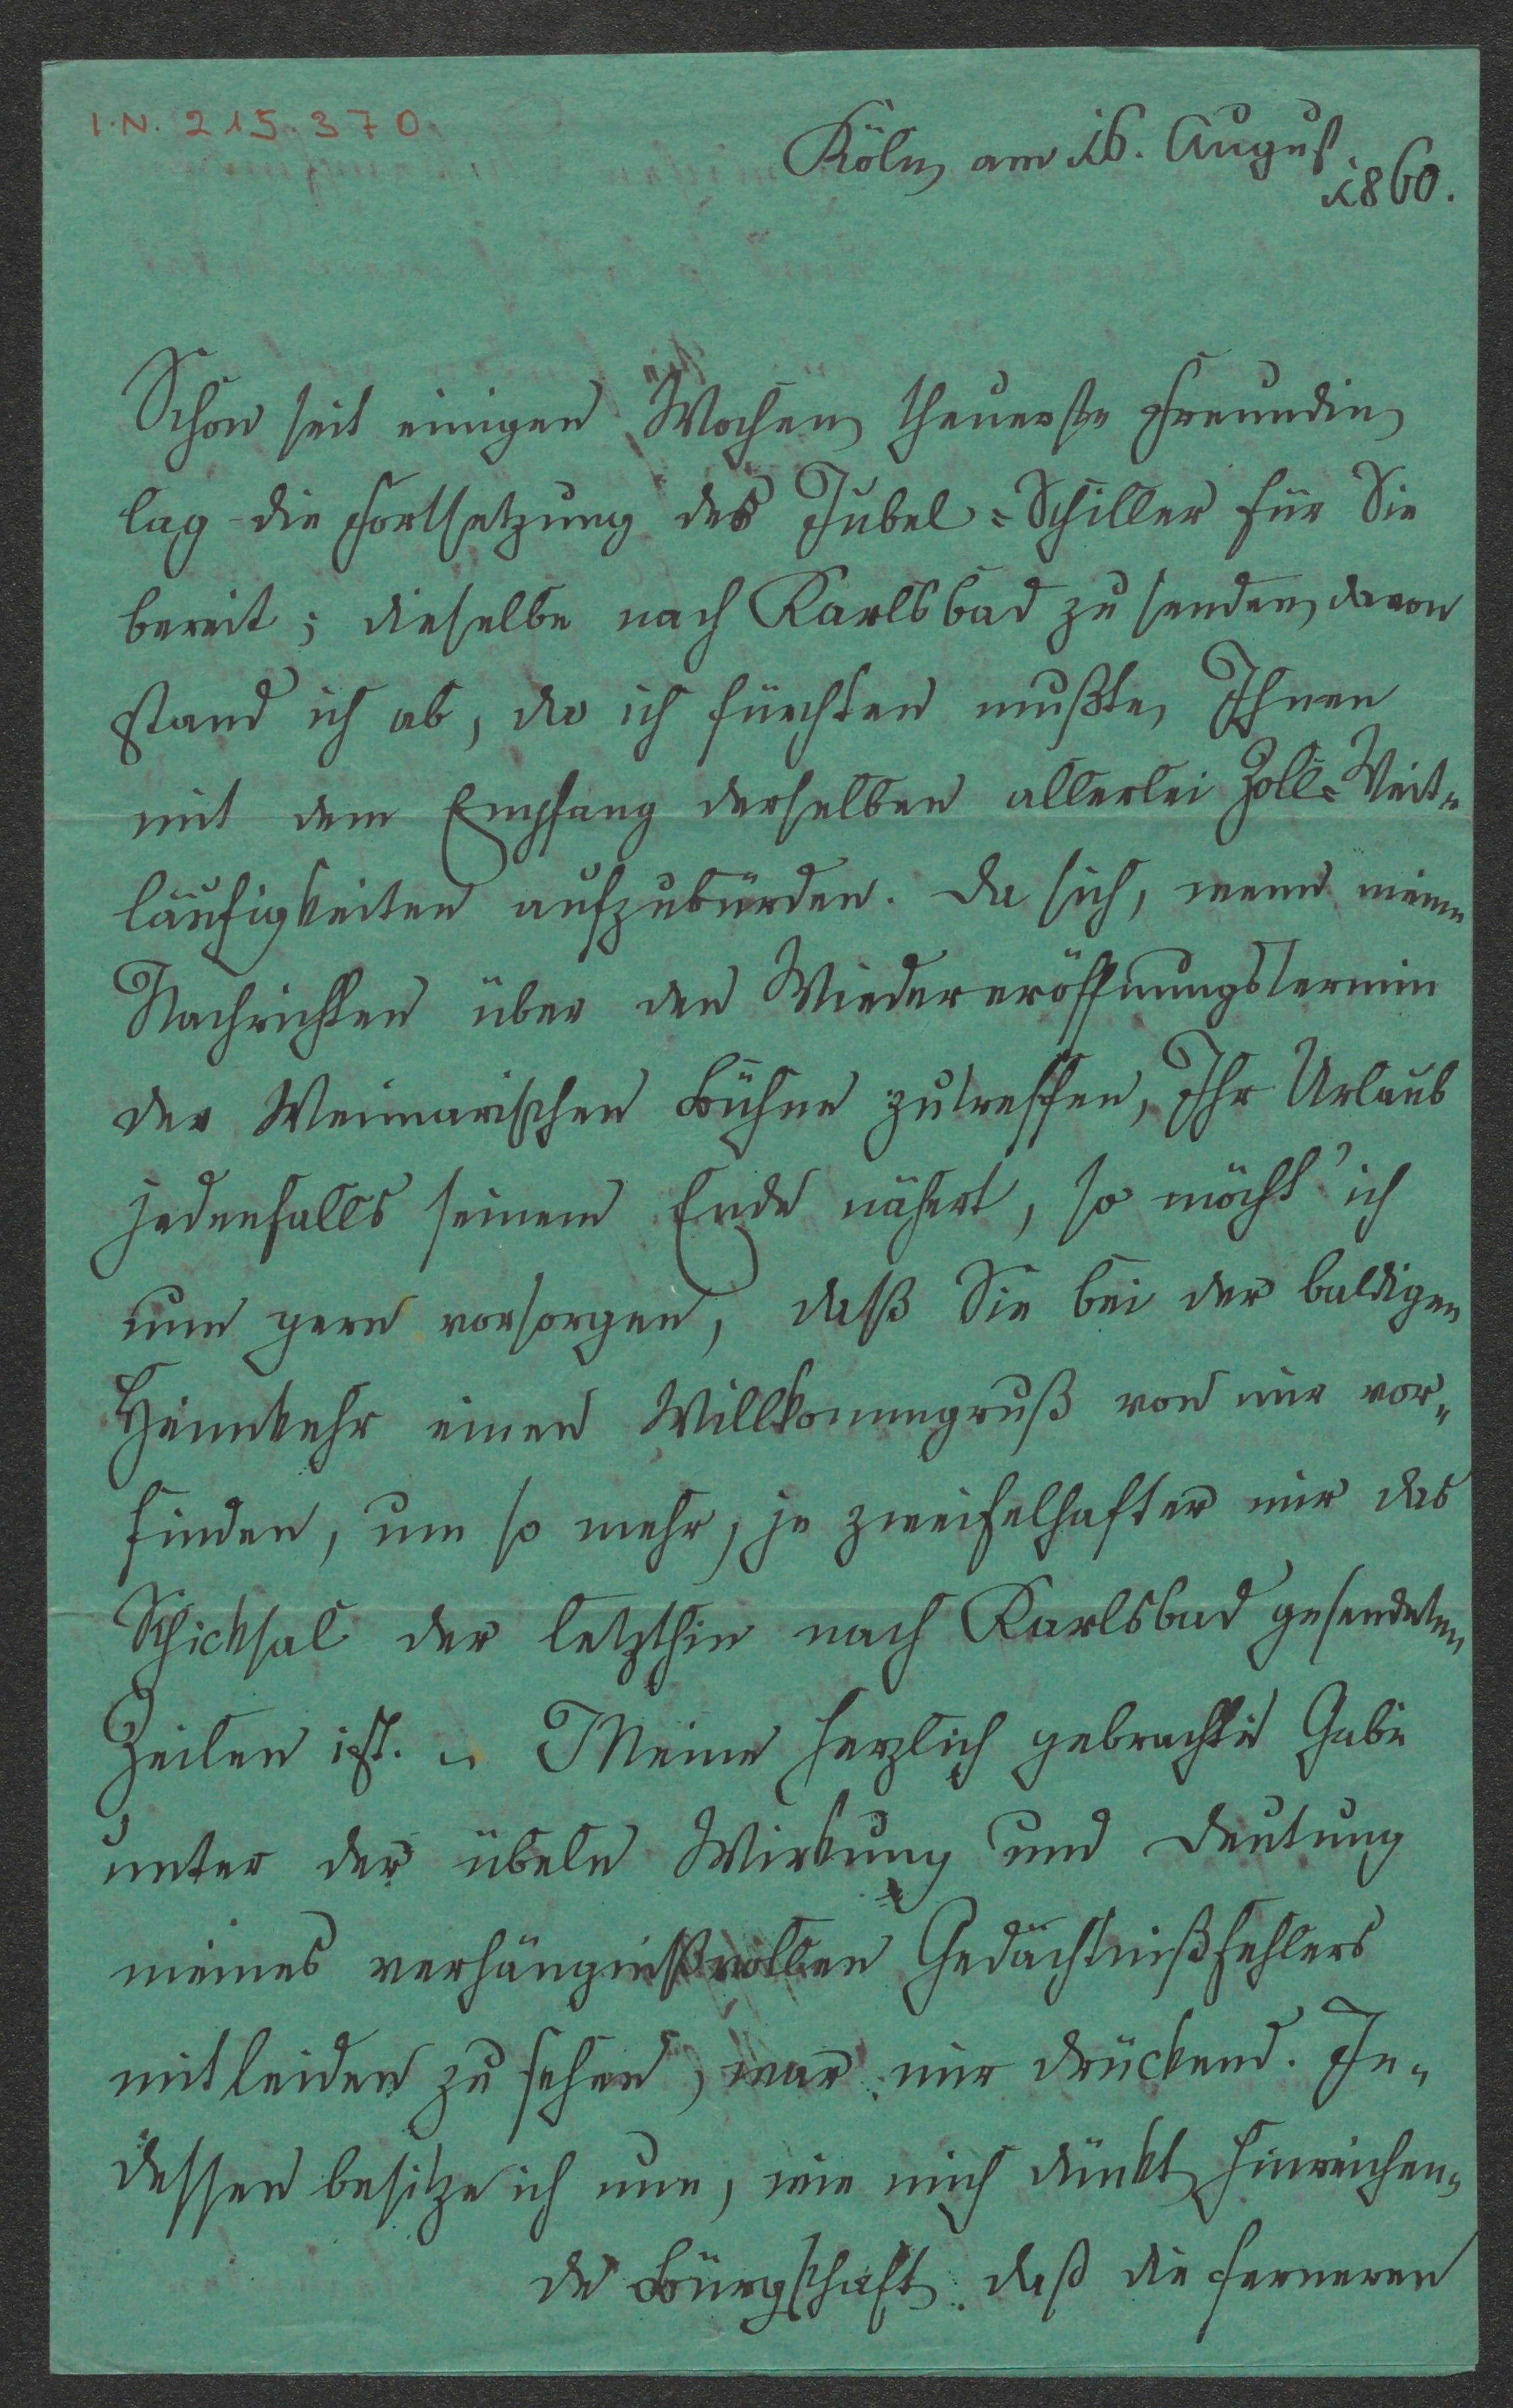 I.N. 215.370
Köln am 16. August
1860.
Schon seit einigen Wochen theuerste Freundin
lag die Fortsetzung des Jubel=Schiller für Sie
bereit; dieselbe nach Karlsbad zu senden, davon
stand ich ab, da ich fürchten mußte, Ihnen
mit dem Empfang derselben allerlei Zoll=Weit=
läufigkeiten aufzubürden. Da sich, wenn meine
Nachrichten über den Wiedereröffnungstermin
der Weimarischen Bühne zutreffen, Ihr Urlaub
jedenfalls seinem Ende nähert, so möcht' ich
nun gern vorsorgen, daß Sie bei der baldigen
Heimkehr einen Willkommgruß von mir vor=
finden, um so mehr, je zweifelhafter mir das
Schicksal der letzthin nach Karlsbad gesendeten
Zeilen ist. – Meine herzlich gebrachte Gabe
unter der übeln Wirkung und Deutung
meines verhängnißvollen Gedächtnißfehlers
mitleiden zu sehen, war mir drückend. In=
dessen besitze ich nun, wie mich dünkt, hinreichen=
de Bürgschaft, daß die ferneren